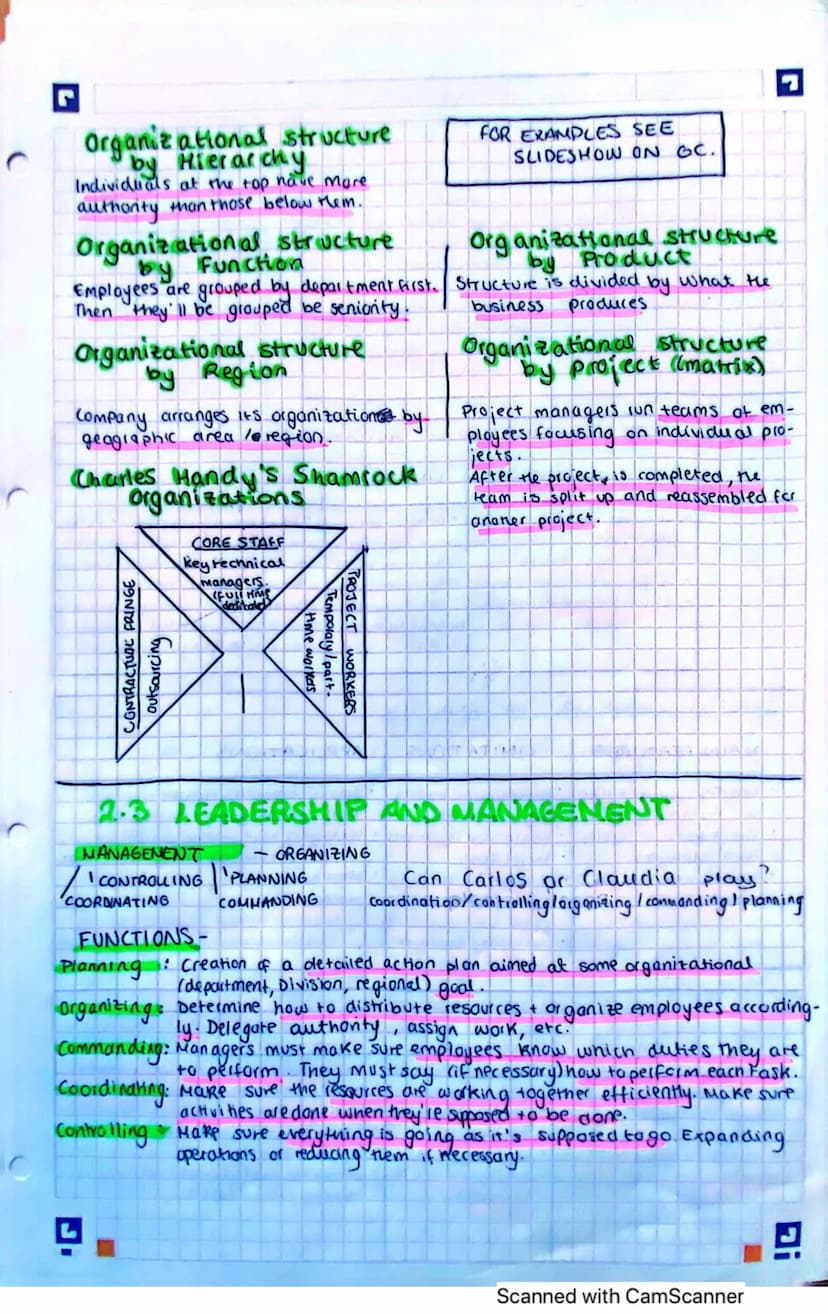 Organizational structure
by Hierarchy
Individuals at the top have more
authority than those below them.
FOR EXAMPLES SEE
SLIDESHOW ON GC.
Organizational structure
by Function
Employees are grouped by department first.
Then they'll be grouped be seniority.
Organizational structure
by Product
Structure is divided by what the
business produces
Organizational structure
by Region
Company arranges its organization by
geographic area /o region.
Organizational structure
by project (matrix)
Project managers run teams of em-
ployees focusing on individual pro-
jects.
After the project, is completed, the
team is split up and reassembled for
another project.
Charles Handy's Shamrock
Organizations
CORE STAFF
key technical
managers.
(full time
dedicated)
CONTRACTUAL FRINGE
outsourcing
PROJECT WORKERS
Temporary/part-
time workers
2.3 LEADERSHIP AND MANAGEMENT
MANAGEMENT - ORGANIZING
CONTROLLING PLANNING
COORDINATING COMMANDING
Can Carlos or Claudia play?
coordination/controlling/organizing/commanding/planning
FUNCTIONS-
Planning: Creation of a detailed action plan aimed at some organizational
(department, Division, regional) goal.
Organizing: Determine how to distribute resources + organize employees according-
ly. Delegate authority, assign work, etc.
Commanding: Managers must make sure employees know which duties they are
to perform. They must say (if necessary) how to perform each task.
Coordinating: Make sure the resources are working together efficiently. Make sure
activities are done when they're supposed to be done.
Controlling: Make sure everything is going as it's supposed to go. Expanding
operations or reducing them if necessary.
Scanned with CamScanner